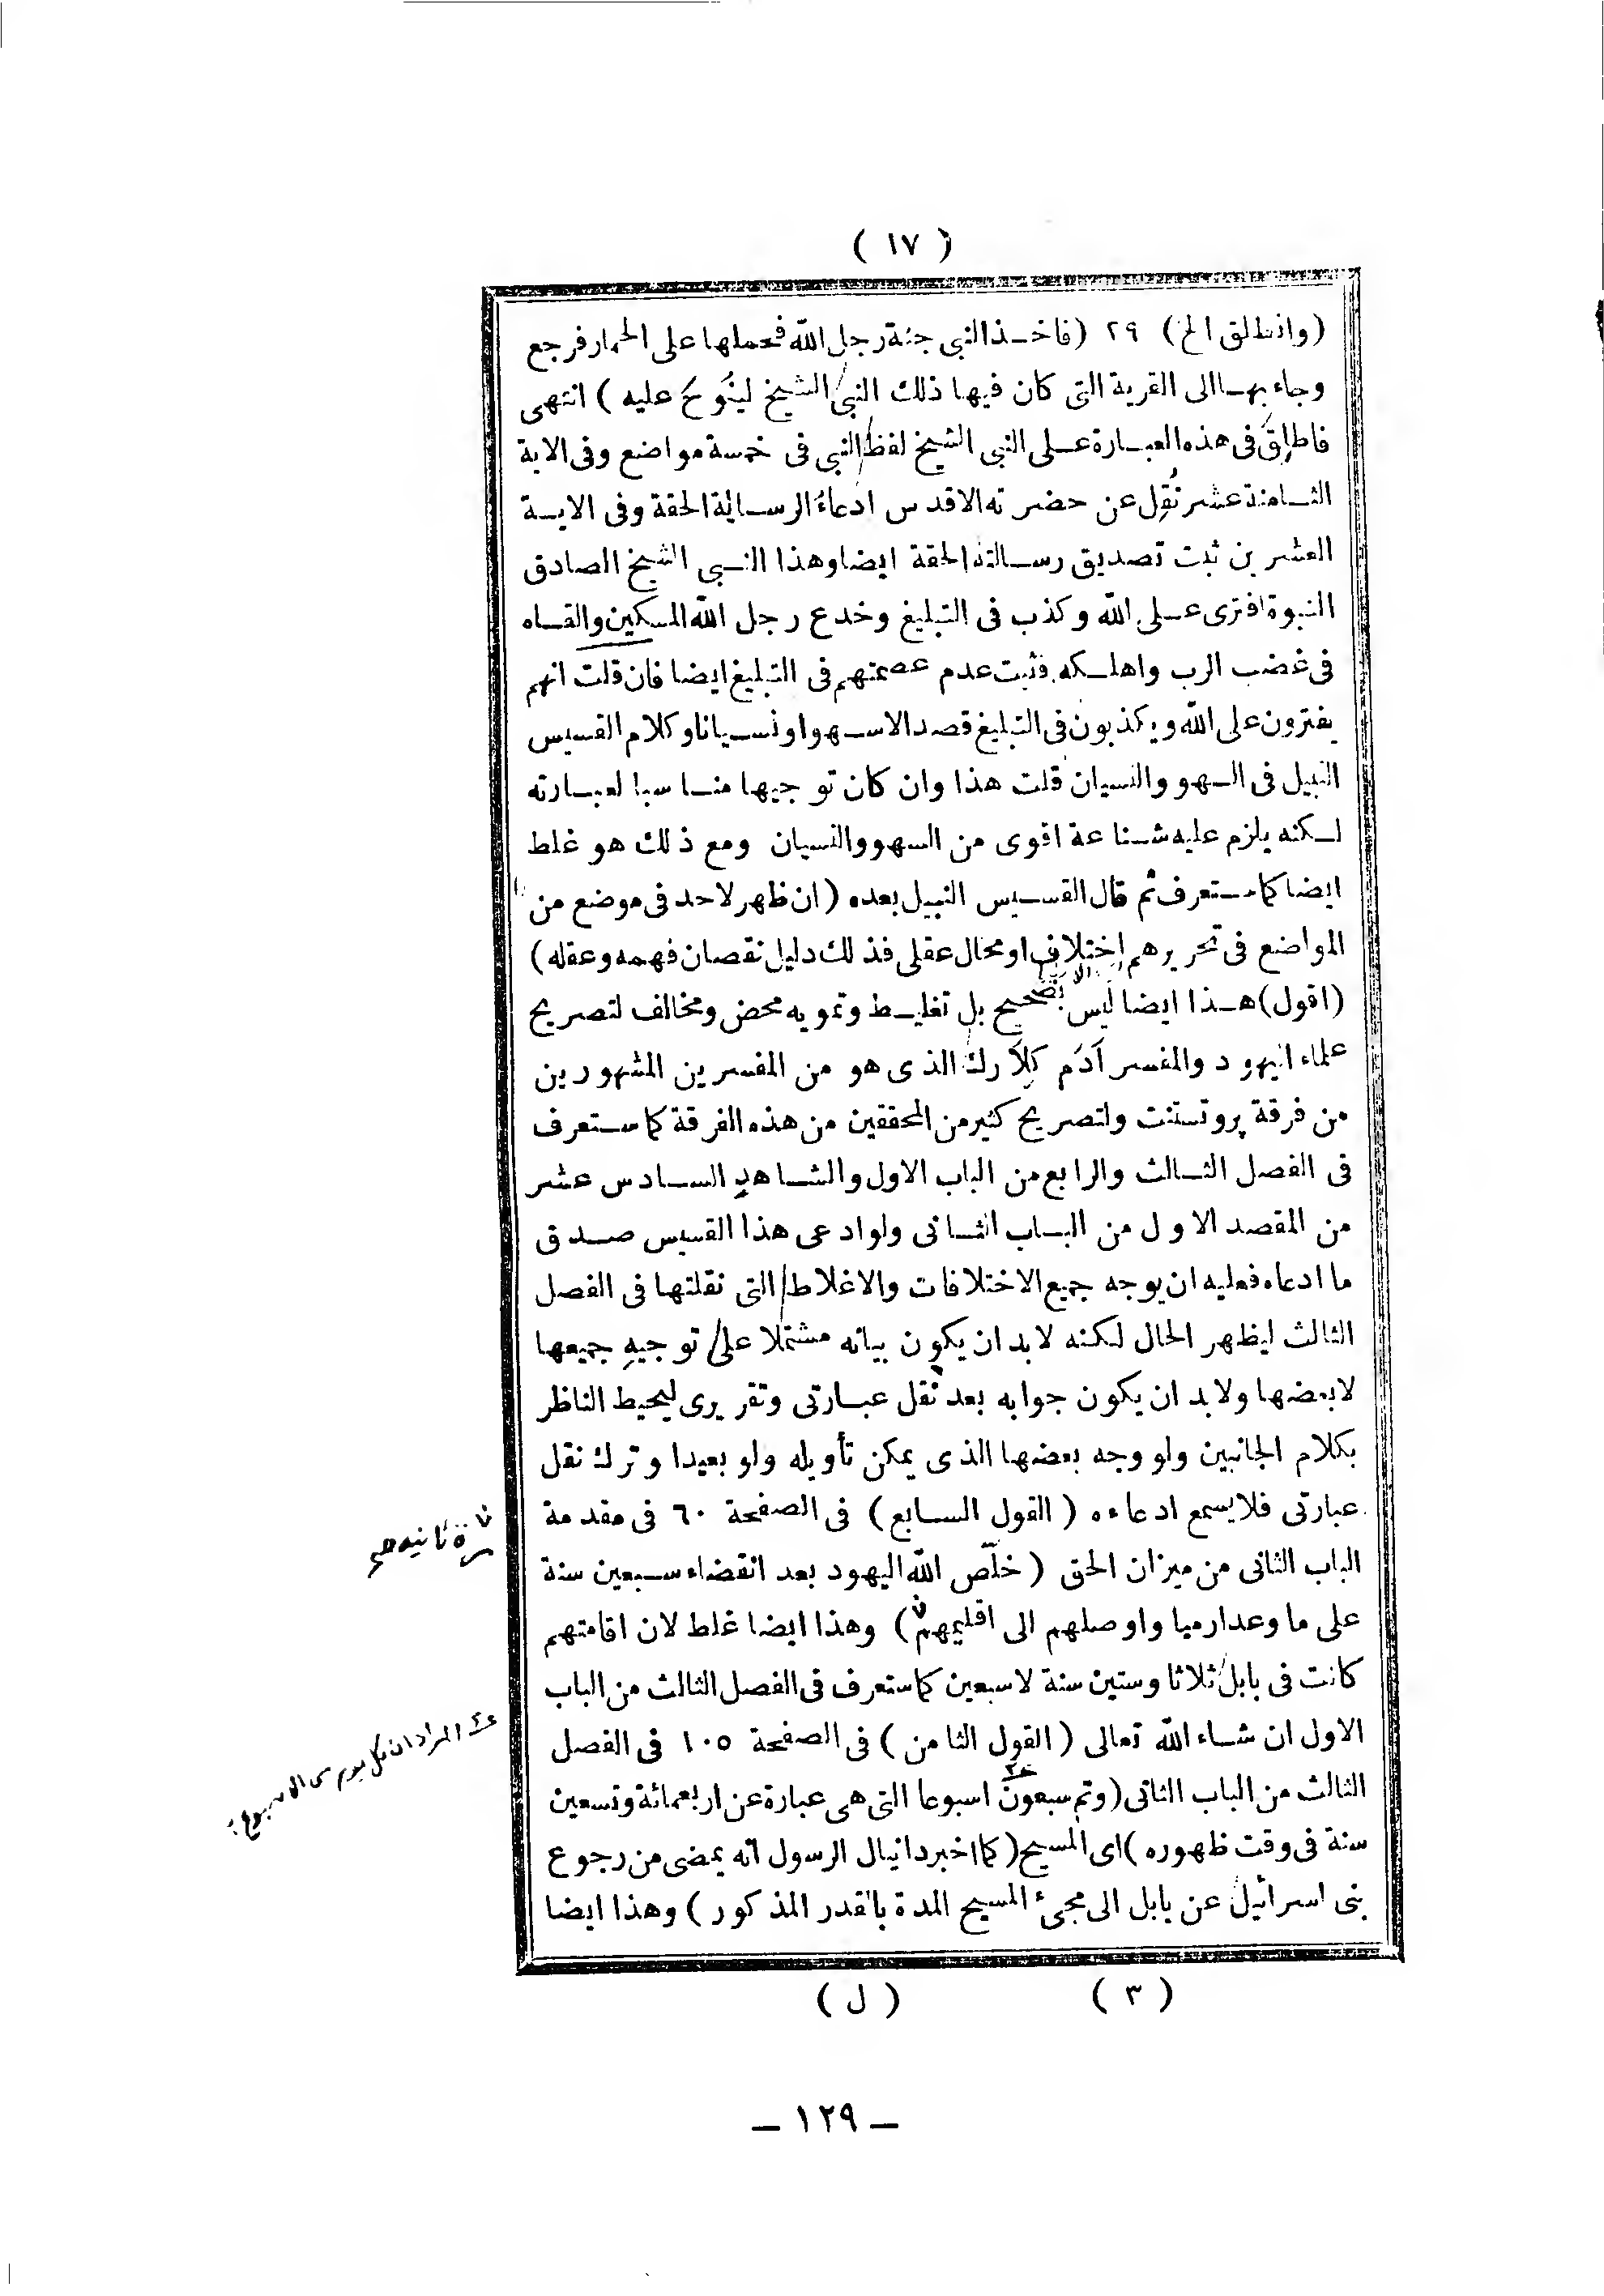 ( ١٧ )
(وانطلق الخ) ٢٩ (فاخذ النبي جثة رجل الله فحملها على الحمار فرجع
وجاء بها الى القرية التى كان فيها ذلك النبى الشيخ لينوح عليه ) انتهى
فاطلق فى هذه العبارة على النبى الشيخ لفظ النبي فى خمسة مواضع وفى الاية
الثامنة عشر نُقِل عن حضرته الاقدس ادعاءُ الرسالة الحقة وفى الاية
العشرين ثبت تصديق رسالته الحقة ايضا وهذا النبى الشيخ الصادق
النبوة افترى على الله وكذب فى التبليغ وخدع رجل الله المسكين والقاه
فى غضب الرب واهلكه فثبت عدم عصمتهم فى التبليغ ايضا فان قلت انهم
يفترون على الله ويكذبون فى التبليغ قصدا لاسهوا ونسيانا وكلام القسيس
النبيل فى السهو والنسيان قلت هذا وان كان توجيها مناسبا لعبارته
لكنه يلزم عليه شناعة اقوى من السهو والنسيان ومع ذلك هو غلط
ايضا كما ستعرف ثم قال القسيس النبيل بعده (ان ظهر لاحد فى موضع من
المواضع فى تحريرهم اختلاف او محال عقلى فذلك دليل نقصان فهمه وعقله)
(اقول) هذا ايضا ليس بصحيح بل تغليط وتمويه محض ومخالف لتصريح
علماء اليهود والمفسر آدَم كِلَارك الذى هو من المفسرين المشهورين
من فرقة پروتستنت ولتصريح كثير من المحققين من هذه الفرقة كما ستعرف
فى الفصل الثالث والرابع من الباب الاول والشاهد السادس عشر
من المقصد الاول من الباب الثانى ولو ادعى هذا القسيس صدق
ما ادعاه فعليه ان يوجه جميع الاختلافات والاغلاط التى نقلتها فى الفصل
الثالث ليظهر الحال لكنه لابد ان يكون بيانه مشتملا على توجيه جميعها
لا بعضها ولابد ان يكون جوابه بعد نقل عبارتى وتقريرى ليحيط الناظر
بكلام الجانبين ولو وجه بعضها الذى يمكن تأويله ولو بعيدا وترك نقل
عبارتى فلا يسمع ادعاءه ( القول السابع ) فى الصفحة ٦٠ فى مقدمة
الباب الثانى من ميزان الحق ( خلّص الله اليهود بعد انقضاء سبعين سنة
على ما وعد ارميا واوصلهم الى اقليمهم) وهذا ايضا غلط لان اقامتهم
كانت فى بابل ثلاثا وستين سنة لا سبعين كما ستعرف فى الفصل الثالث من الباب
الاول ان شاء الله تعالى ( القول الثامن ) فى الصفحة ١٠٥ فى الفصل
الثالث من الباب الثانى (وتم سبعون اسبوعا التى هى عبارة عن اربعمائة وتسعين
سنة فى وقت ظهوره ) اى المسيح ( كما اخبر دانيال الرسول انه يمضى من رجوع
بنى اسرائيل عن بابل الى مجىء المسيح المدة بالقدر المذكور ) وهذا ايضا
( ٣ ) ( ل )
مرة ثانية
المراد ان كل يوم من الاسبوع
— ١٢٩ —